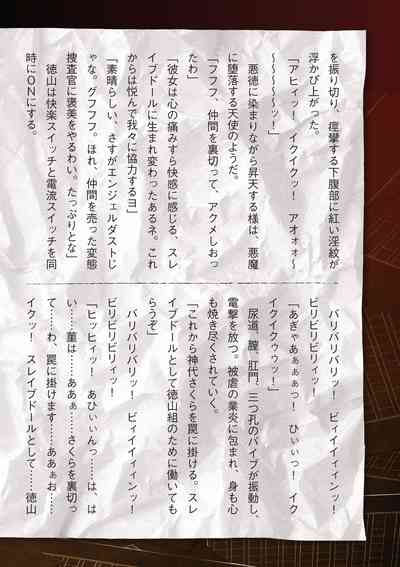 を振り切り、痙攣する下腹部に紅い淫紋が
浮かび上がった。
「アヒィッ！　イクイクッ！　アオォォ～
～～～～～ッ！」
　悪徳に染まりながら昇天する様は、悪魔
に堕落する天使のようだ。
「フフフ、仲間を裏切って、アクメしおっ
たわ」
「彼女は心の痛みすら快感に感じる、スレ
イブドールに生まれ変わったあるネ。これ
からは悦んで我々に協力するヨ」
「素晴らしい。さすがエンジェルダストじ
ゃな。グフフフ。ほれ、仲間を売った変態
捜査官に褒美をやるわい。たっぷりとな」
　徳山は快楽スイッチと電流スイッチを同
時にONにする。
　バリバリバリッ！　ビィイイィィンッ！
ビリビリビリィッ！
「あぎゃあぁぁぁっ！　ひぃぃっ！　イク
イクイクゥゥッ！」
　尿道、膣、肛門、三つ孔のバイブが振動し、
電撃を放つ。被虐の業炎に包まれ、身も心
も焼き尽くされていく。
「これから神代さくらを罠に掛ける。スレ
イブドールとして徳山組のために働いても
らうぞ」
　バリバリバリッ！　ビィイイィィンッ！
ビリビリビリィッ！
「ヒッヒィッ！　あひぃぃんっ……は、は
い……菫は……ああぁ……さくらを裏切っ
て……わ、罠に掛けます……ああぁお……
イクッ！　スレイブドールとして……徳山